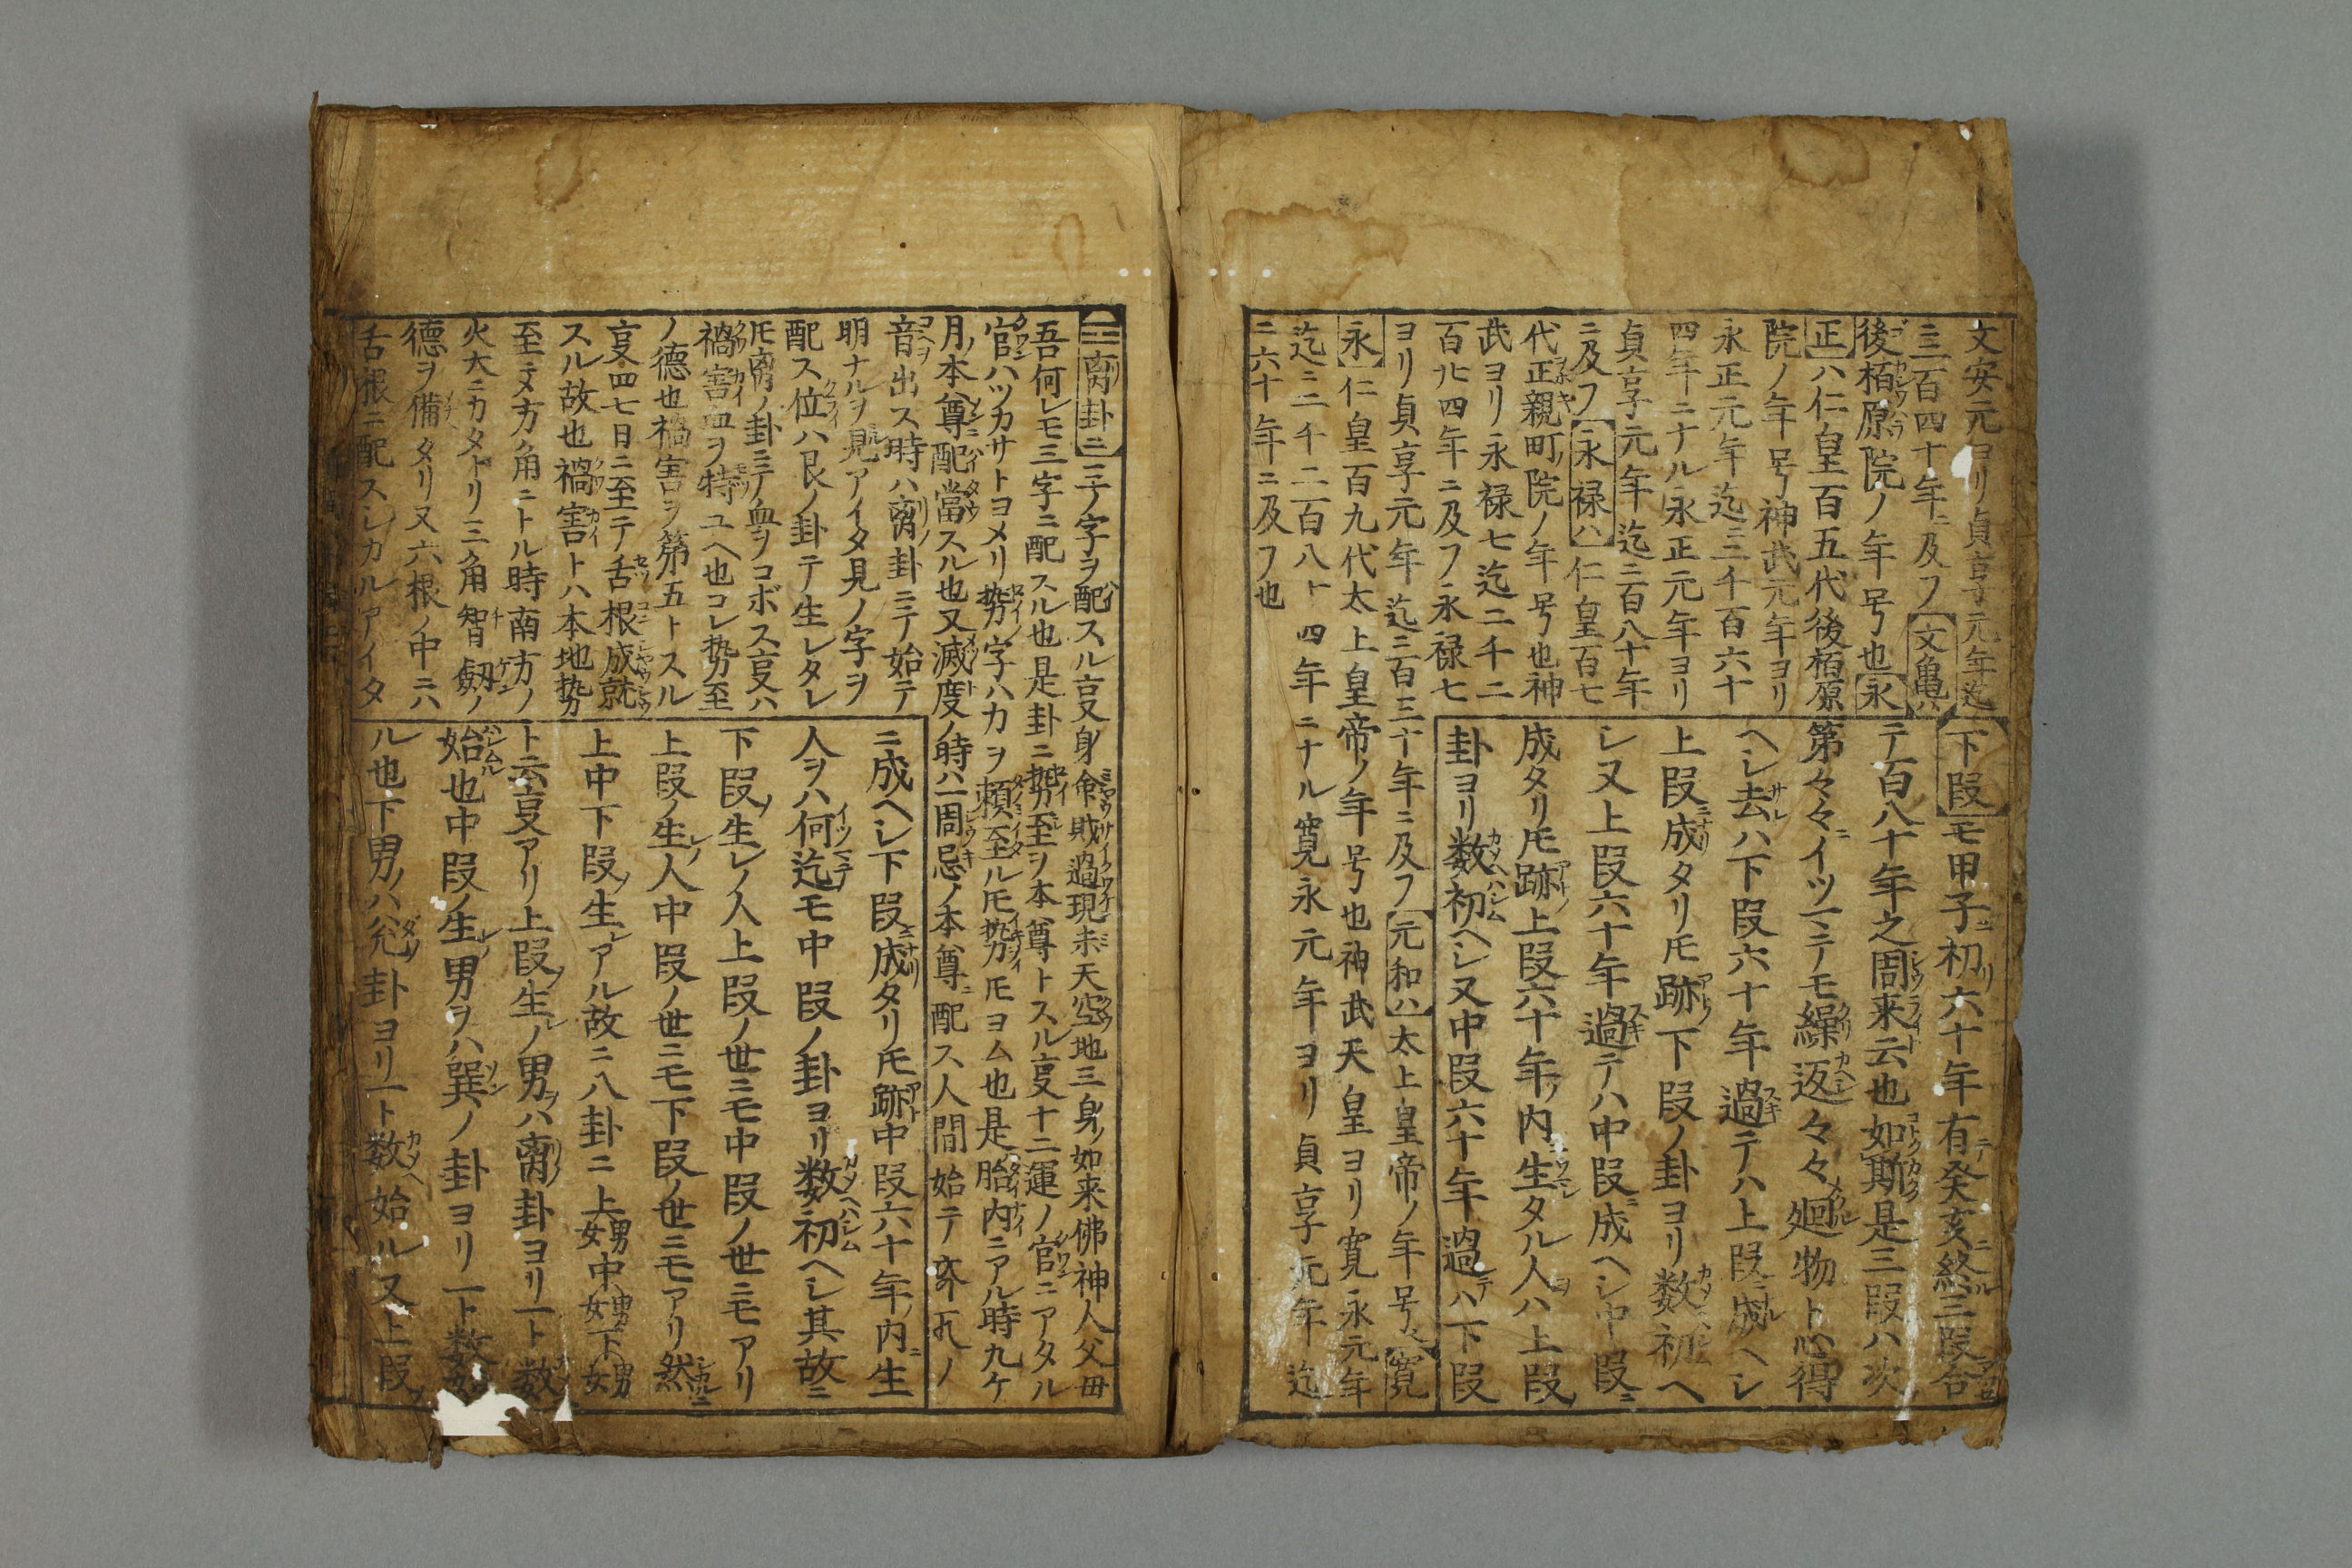 文安元ヨリ貞享元年迄
三百四十年ニ及フ【文亀ハ】
後栢原院ノ年号也【永
正】ハ仁皇百五代後栢原
院ノ年号神武元年ヨリ
永正元年迄二千百六十
四年ニナル永正元年ヨリ
貞享元年迄二百八十年
ニ及フ【永禄ハ】仁皇百七
代正親町院ノ年号也神
武ヨリ永禄七迄二千二
百廿四年ニ及フ永禄七
ヨリ貞享元年迄三百三十年ニ及フ【元和ハ】太上皇帝ノ年号也【寛
永】仁皇百九代太上皇帝ノ年号也神武天皇ヨリ寛永元年
迄ニ二千二百八十四年ニナル寛永元年ヨリ貞享元年迄
ニ六十年ニ及フ也
【下段】モ甲子ニ初リ六十年有テ癸亥ニ終ル三段合
テ百八十年之周来ト云也如斯是三段ハ次
第々々ニイツマテモ繰返々々廻物ト心得
ヘシ去レハ下段六十年過テハ上段ニ成ルヘシ
上段ニ成タリ𪜈跡ノ下段ノ卦ヨリ数初ヘ
シ又上段六十年過テハ中段ニ成ヘシ中段ニ
成タリ𪜈跡ノ上段六十年ノ内ニ生タル人ヲハ上段ノ
卦ヨリ数初ヘシ又中段六十年過テハ下段
ニ成ヘシ下段ニ成タリ𪜈跡中段六十年ノ内ニ生
人ヲハ何迄モ中段ノ卦ヨリ数初ヘシ其故ニ
下段ノ生レノ人上段ノ世ニモ中段ノ世ニモアリ
上段ノ生レノ人中段ノ世ニモ下段ノ世ニモアリ然ルニ
上中下段ノ生レアル故ニ八卦ニ上男女中男女下男女
ト云事アリ上段ノ生レノ男ヲハ離ノ卦ヨリ一ト数
始ムル也中段ノ生レノ男ヲハ巽ノ卦ヨリ一ト数始
ル也下男ノハ兌ノ卦ヨリ一ト数ヘ始ル又上段ノ
【☲離卦ニ】三ノ字ヲ配スル事身命財過現未天空地三身ノ如来佛神人父母
吾何レモ三字ニ配スル也是卦ニ勢至ヲ本尊トスル事十二運ノ官ニアタル
官ハツカサトヨメリ勢ノ字ハ力ヲ頼至ル𪜈勢力𪜈ヨム也是胎内ニアル時九ケ
月ノ本尊ニ配當スル也又滅度ノ時ハ一周忌ノ本尊ニ配ス人間始テ
音ヲ出ス時ハ離ノ卦ニテ始テ
明ナルヲ見ルアイタ見ノ字ヲ
配ス位ハ艮ノ卦テ生レタレ
𪜈離ノ卦ニテノ血ヲコボス事ハ
禍害血ヲ持ユヘ也コレ勢至
ノ德也禍害ヲ第五トスル
事四七日ニ至テ舌根成就
スル故也禍害トハ本地勢
至ニヌ方角ニトル時南方ノ
火大ニカタトリ三角智釼ノ
德ヲ備タリ又六根ノ中ニハ
舌根ニ配スシカルアイタ